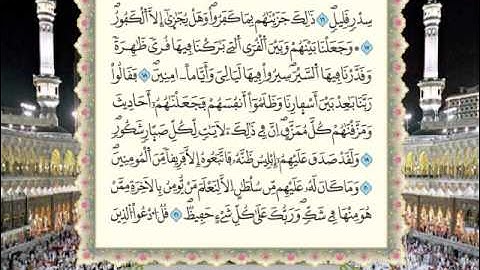 سِدْرٍ قَلِيلٍ ١٦ ذَٰلِكَ جَزَيْنَٰهُم بِمَا كَفَرُوا۟ وَهَلْ يُجَٰزَىٰٓ إِلَّا ٱلْكَفُورُ
١٧ وَجَعَلْنَا بَيْنَهُمْ وَبَيْنَ ٱلْقُرَى ٱلَّتِى بَٰرَكْنَا فِيهَا قُرًى ظَٰهِرَةً
وَقَدَّرْنَا فِيهَا ٱلسَّيْرَ سِيرُوا۟ فِيهَا لَيَالِىَ وَأَيَّامًا ءَامِنِينَ ١٨ فَقَالُوا۟
رَبَّنَا بَٰعِدْ بَيْنَ أَسْفَارِنَا وَظَلَمُوٓا۟ أَنفُسَهُمْ فَجَعَلْنَٰهُمْ أَحَادِيثَ
وَمَزَّقْنَٰهُمْ كُلَّ مُمَزَّقٍ إِنَّ فِى ذَٰلِكَ لَءَايَٰتٍ لِّكُلِّ صَبَّارٍ شَكُورٍ
١٩ وَلَقَدْ صَدَقَ عَلَيْهِمْ إِبْلِيسُ ظَنَّهُۥ فَٱتَّبَعُوهُ إِلَّا فَرِيقًا مِّنَ ٱلْمُؤْمِنِينَ
٢٠ وَمَا كَانَ لَهُۥ عَلَيْهِم مِّن سُلْطَٰنٍ إِلَّا لِنَعْلَمَ مَن يُؤْمِنُ بِٱلْءَاخِرَةِ مِمَّنْ
هُوَ مِنْهَا فِى شَكٍّ وَرَبُّكَ عَلَىٰ كُلِّ شَىْءٍ حَفِيظٌ ٢١ قُلِ ٱدْعُوا۟ ٱلَّذِينَ